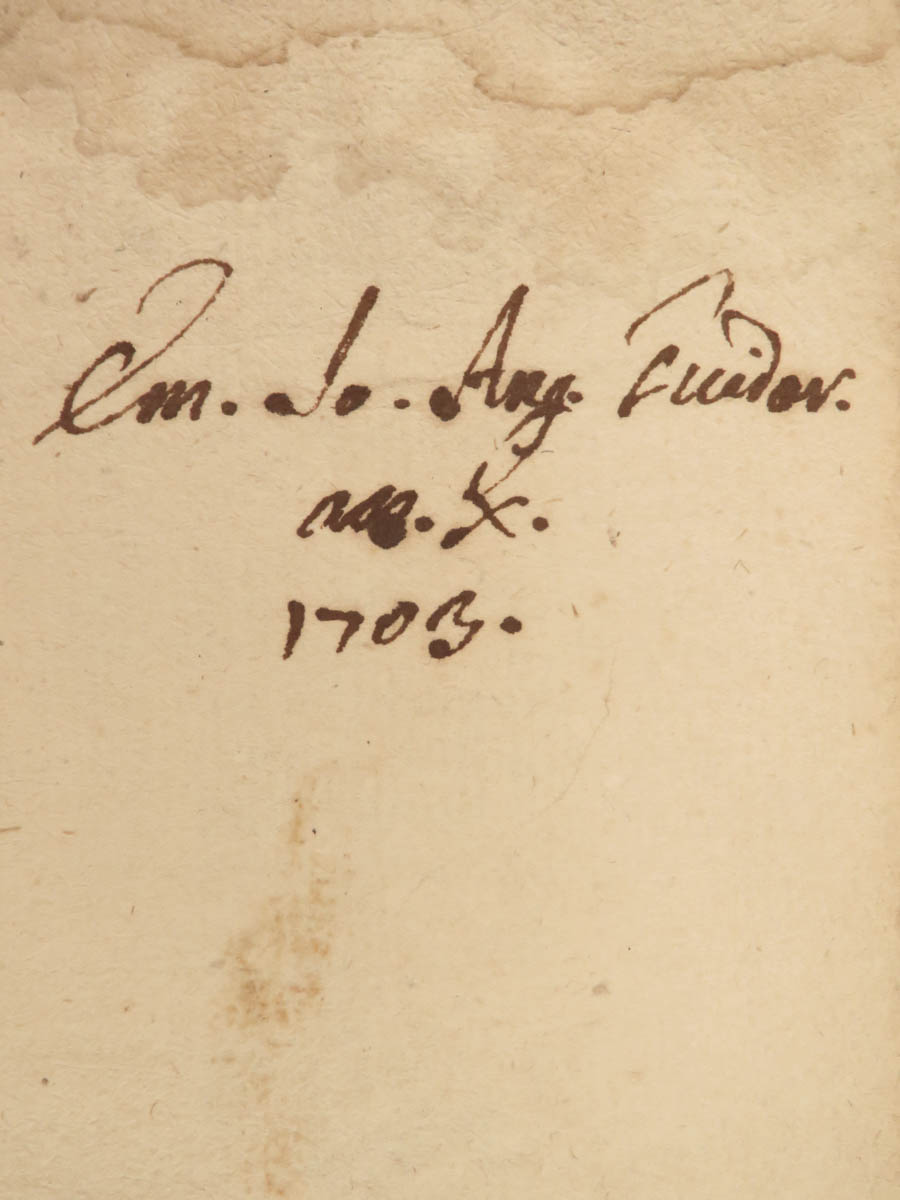 Em. Jo. Ang. Tuidor.
an. X.
1703.